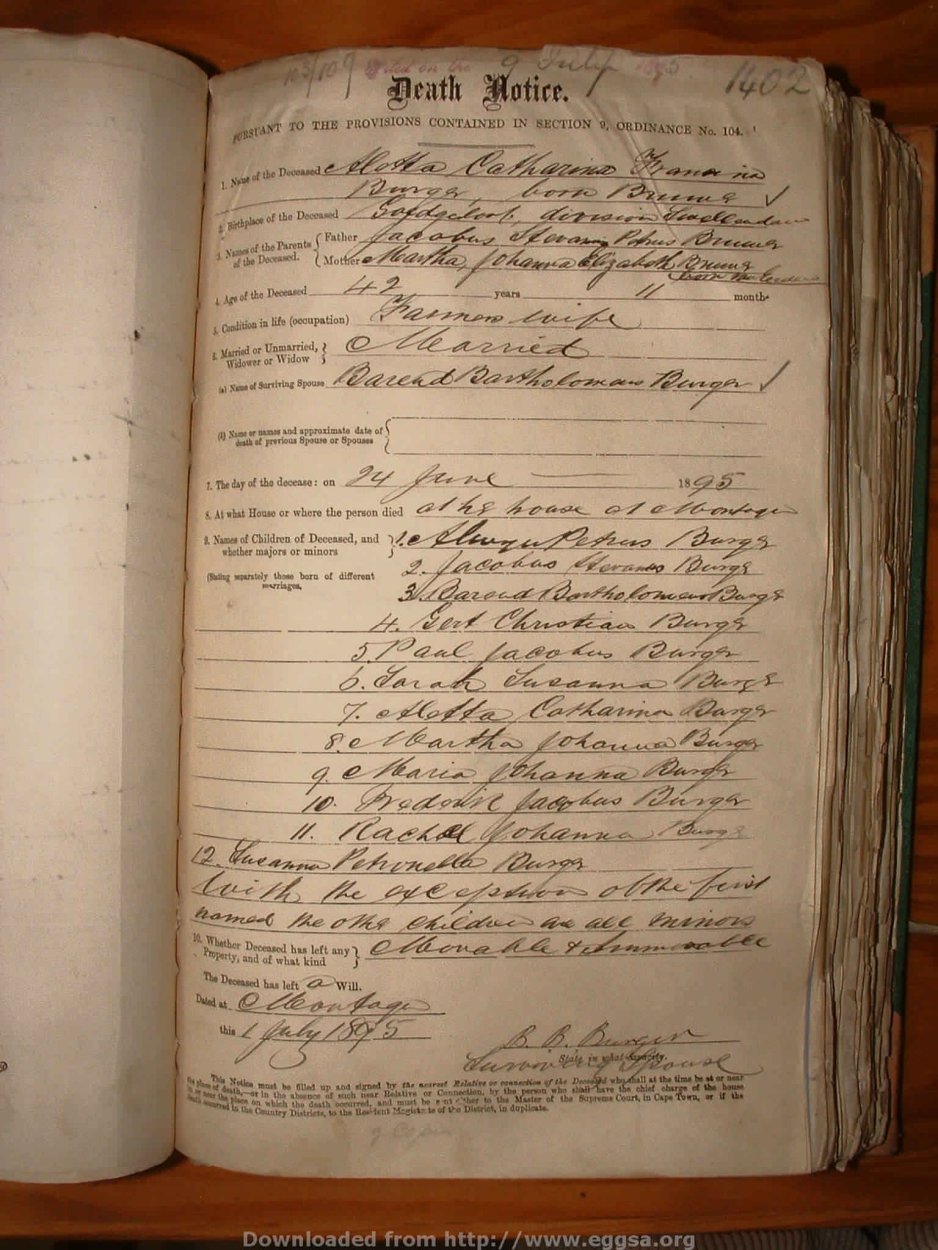 103/109 Filed on the 9 July 1895 1402
Death Notice.
PURSUANT TO THE PROVISIONS CONTAINED IN SECTION 9, ORDINANCE No. 104.
1. Name of the Deceased Aletta Catharina Francina
Burger, born Bruwer
2. Birthplace of the Deceased division Swellendam
3. Names of the Parents of the Deceased. Father Jacobus Stevanus Petrus Bruwer
Mother Martha Johanna Elizabeth Bruwer
born
4. Age of the Deceased 42 years 11 months
5. Condition in life (occupation) Farmers wife
6. Married or Unmarried, Widower or Widow Married
(a) Name of Surviving Spouse Barend Bartholomeus Burger
(b) Name or names and approximate date of death of previous Spouse or Spouses
7. The day of the decease: on 24 June 1895
8. At what House or where the person died at his house at Montagu
9. Names of Children of Deceased, and whether majors or minors 1. Petrus Burger
(Stating separately those born of different marriages. 2. Jacobus Stevanus Burger
3. Barend Bartholomeus Burger
4. Gert Christiaan Burger
5 Paul Jacobus Burger
6. Sarah Susanna Burger
7. Aletta Catharina Burger
8. Martha Johanna Burger
9. Maria Johanna Burger
10. Frederik Jacobus Burger
11. Rachel Johanna Burger
12. Susanna Petronella Burger
With the exception of the first
named the other children are all minors
10. Whether Deceased has left any Property, and of what kind Movable & Immovable
The Deceased has left a Will.
Dated at Montagu
this 1 July 1895
B. B. Burger
State in what capacity.
Surviving Spouse
This Notice must be filled up and signed by the nearest Relative or connection of the Deceased who shall at the time be at or near
the place of death,—or in the absence of such near Relative or Connection, by the person who shall have the chief charge of the house
in or near the place on which the death occurred, and must be sent either to the Master of the Supreme Court, in Cape Town, or if the
death occurred in the Country Districts, to the Resident Magistrate of the District, in duplicate.
Downloaded from http://www.eggsa.org